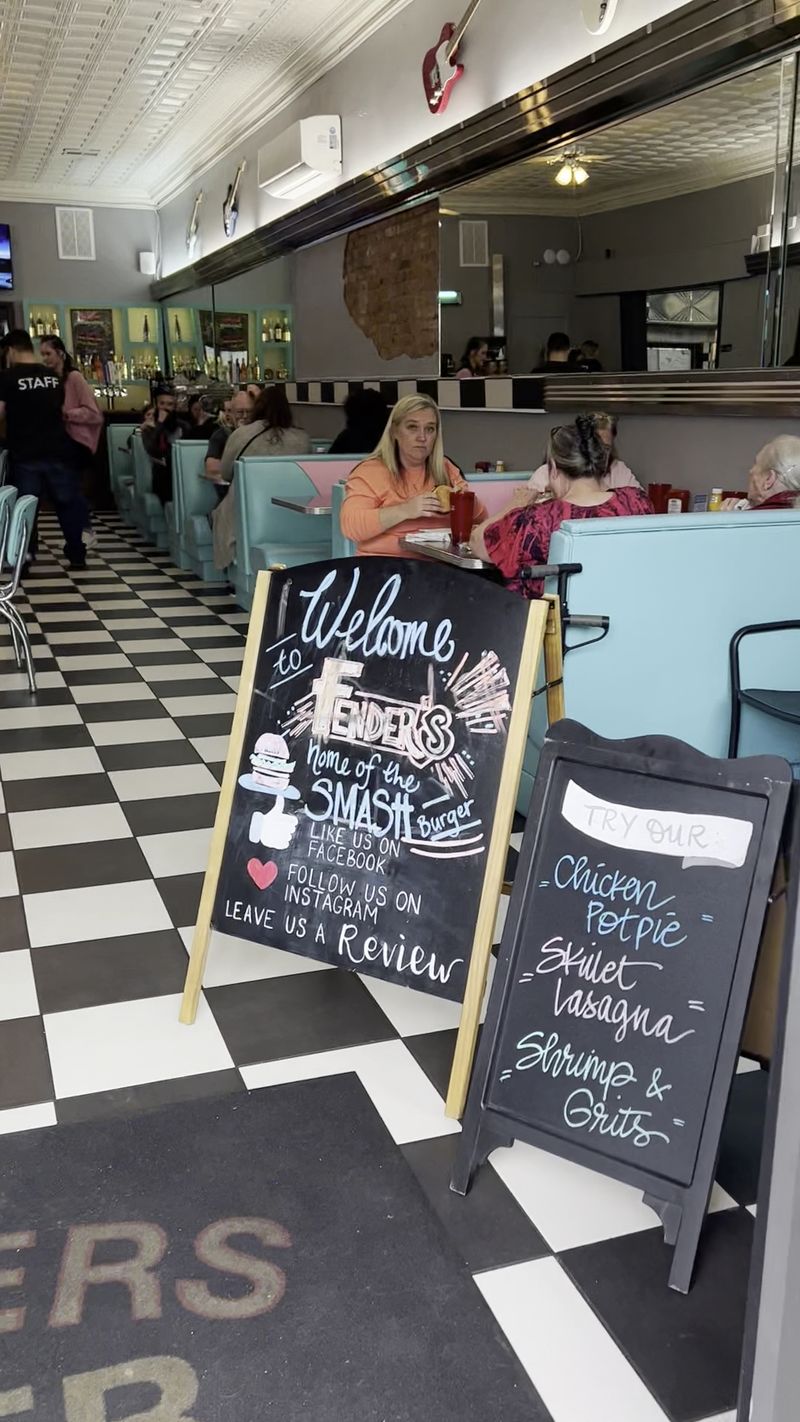 STAFF
Welcome
to
FENDER'S
home of the
SMASH Burger
LIKE US ON
FACEBOOK
FOLLOW US ON
INSTAGRAM
LEAVE US A Review
TRY OUR
Chicken
Potpie
Skillet
lasagna
Shrimp &
Grits
ERS
ER